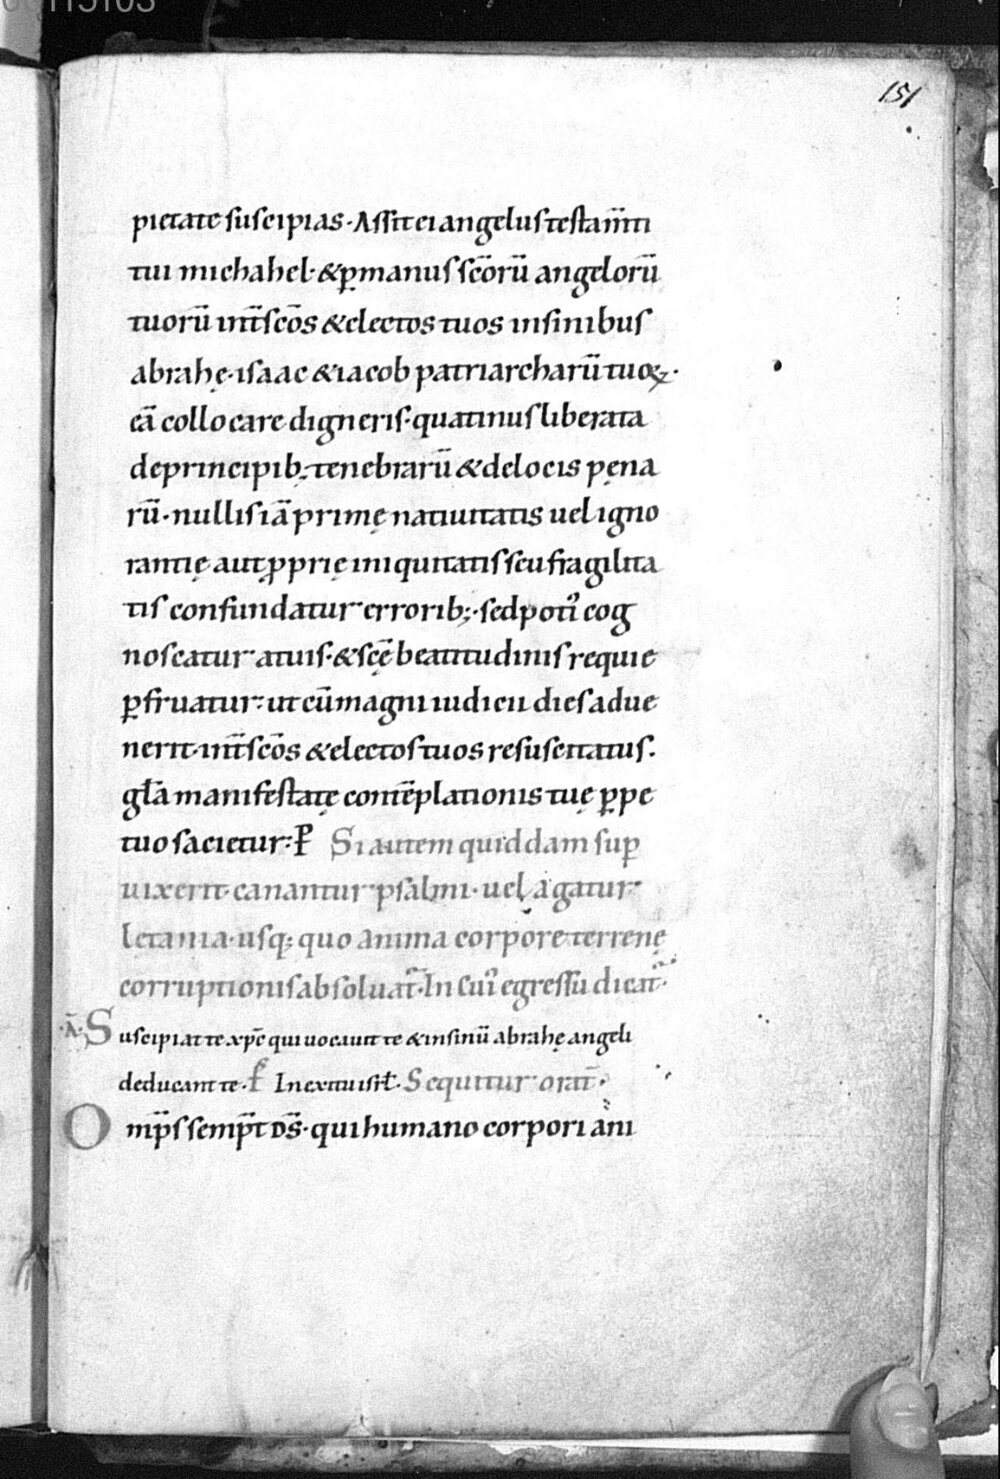 151
pietate suscipias· Assit ei angelus testam̄ti
tui michahel· & ꝑ manus sc̄orū angelorū
tuorū int̄ sc̄os & electos tuos in sinibus
abrahę· isaac & iacob patriarcharū tuoꝝ·
eā collocare digneris· quatinus liberata
de principib; tenebrarū & de locis pęna
rū· nullis iā primę natiuitatis uel igno
rantię aut ꝓprię iniquitatis seu fragilita
tis confundatur errorib;· sed poti᷒ cog
noscatur a tuis· & sc̄ę beatitudinis requie
ꝑfruatur· ut cū magni iudicii dies adue
nerit· int̄ sc̄os & electos tuos resuscitatus·
gl̄a manifestatę contēplationis tuę ꝑpe
tuo sacietur· ꝑ Si autem quiddam suꝑ
uixerit· canantur psalmi· uel agatur
letania· usq; quo anima corpore terrenę
corruptionis absoluat̄· In cui᷒ egressu dicat̄·
·A̅· Suscipiat te xp̄c qui uocauit te & in sinū abrahę angeli
deducant te· In exitu isrl̄· Sequitur orat̄·
Omp̄s semp̄t ds̄· qui humano corpori ani